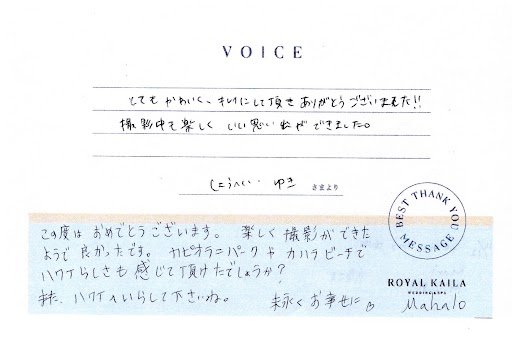 VOICE
とてもかわいく、キレイにして頂きありがとうございました!!
撮影中も楽しく いい思い出ができました。
しょうへい・ゆき さまより
BEST THANK YOU MESSAGE
この度は おめでとうございます。 楽しく撮影ができた
ようで良かったです。 カピオラニパークや カハラビーチで
ハワイらしさも感じて頂けたでしょうか?
また、ハワイへいらして下さいね。 末永くお幸せに
ROYAL KAILA
WEDDING & SPA
Mahalo